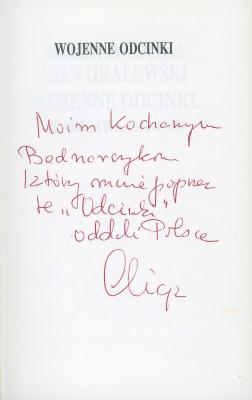 WOJENNE ODCINKI
JAN GRALEWSKI
WOJENNE ODCINKI
Moim Kochanym
Bednarczykom
którzy mnie poprzez
te „Odcinki"
oddali Polsce